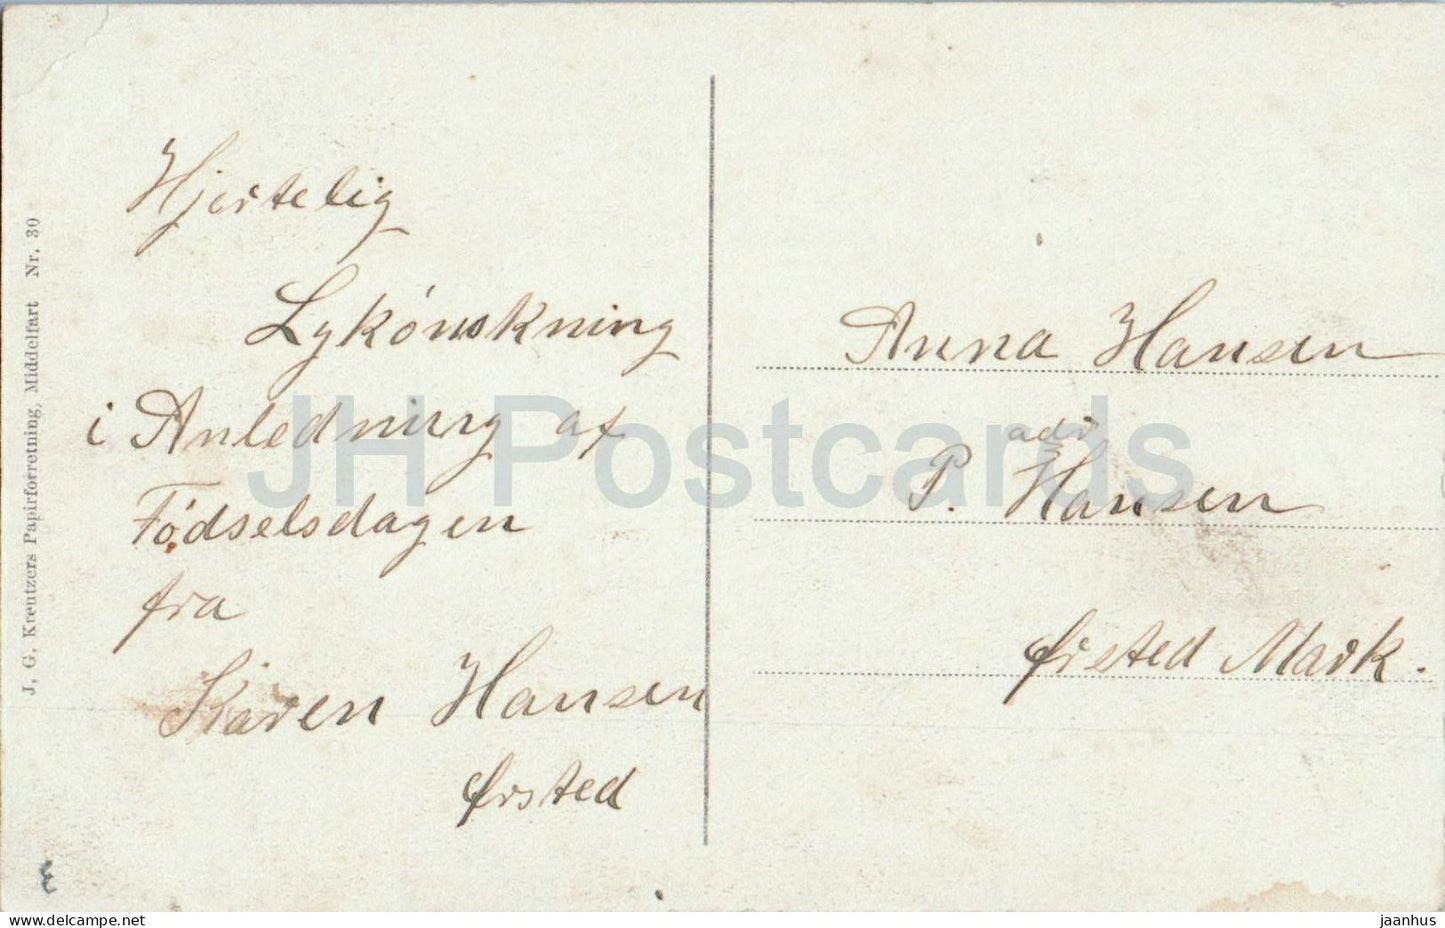 J. G. Kreutzers Papirforretning, Middelfart Nr. 30
Hjertelig
Lykónskning
i Anledning af
Fódselsdagen
fra
Karen Hansen
Ørsted
Anna Hansen
adr
P. Hansen
Ørsted Mark.
JH Postcards
www.delcampe.net
jaanhus